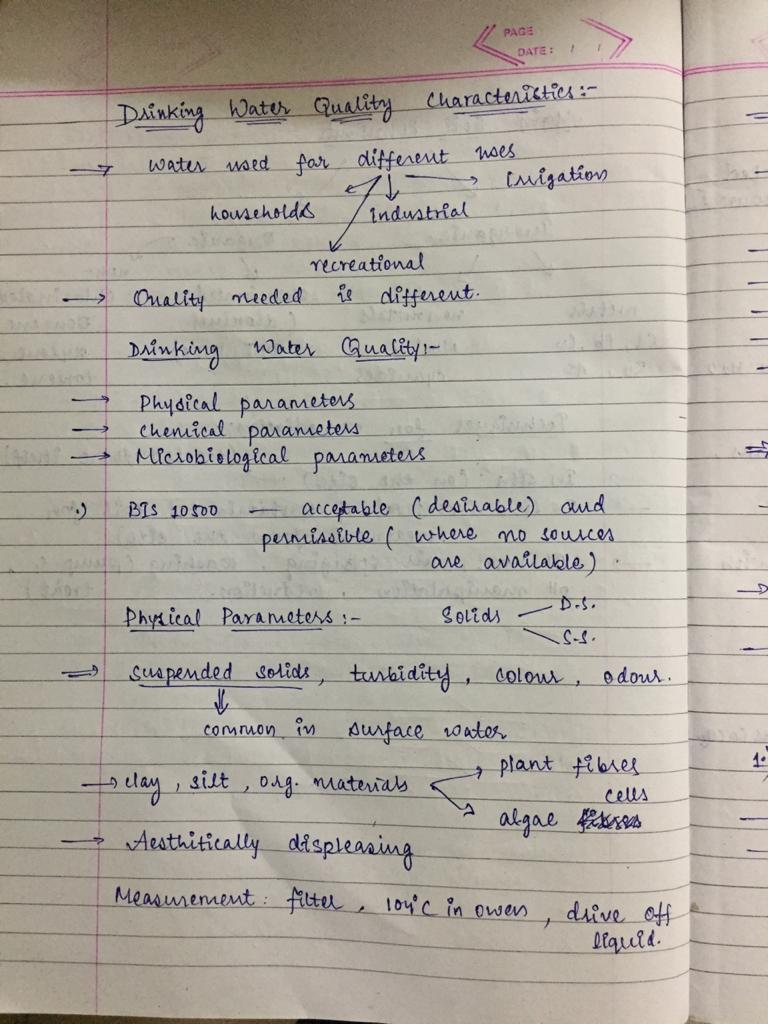 PAGE
DATE: / /
Drinking Water Quality Characteristics:-
→ Water used for different uses
Irrigation
households Industrial
recreational
→ Quality needed is different.
Drinking Water Quality:-
→ Physical parameters
→ chemical parameters
→ Microbiological parameters
•) BIS 10500 — acceptable (desirable) and
permissible ( where no sources
are available) .
Physical Parameters:- Solids — D.S.
S.S.
⇒ suspended solids, turbidity, colour, odour.
common in surface water
→ clay, silt, org. materials → plant fibres
cells
algae
→ Aesthitically displeasing
Measurement: filter, 104°C in owen, drive off
liquid.